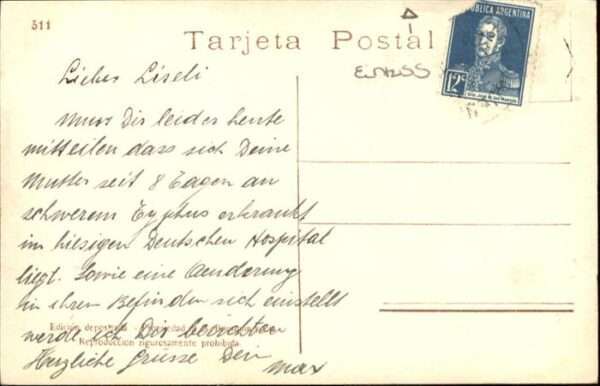 511
Tarjeta Postal
REPUBLICA ARGENTINA
12c
Lieber Liseli
Muss Dir leider heute
mitteilen dass sich Deine
Mutter seit 8 Tagen an
schwerem Typhus erkrankt
im hiesigen Deutschen Hospital
liegt. Sowie eine Aenderung
in ihrem Befinden sich einstellt
werde ich Dir berichten
Herzliche Grüsse Dein
Max
Edición depositada - Propiedad
Reproducción rigurosamente prohibida